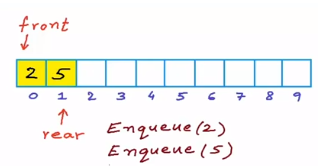 front
2 5
0 1 2 3 4 5 6 7 8 9
rear
Enqueue(2)
Enqueue(5)